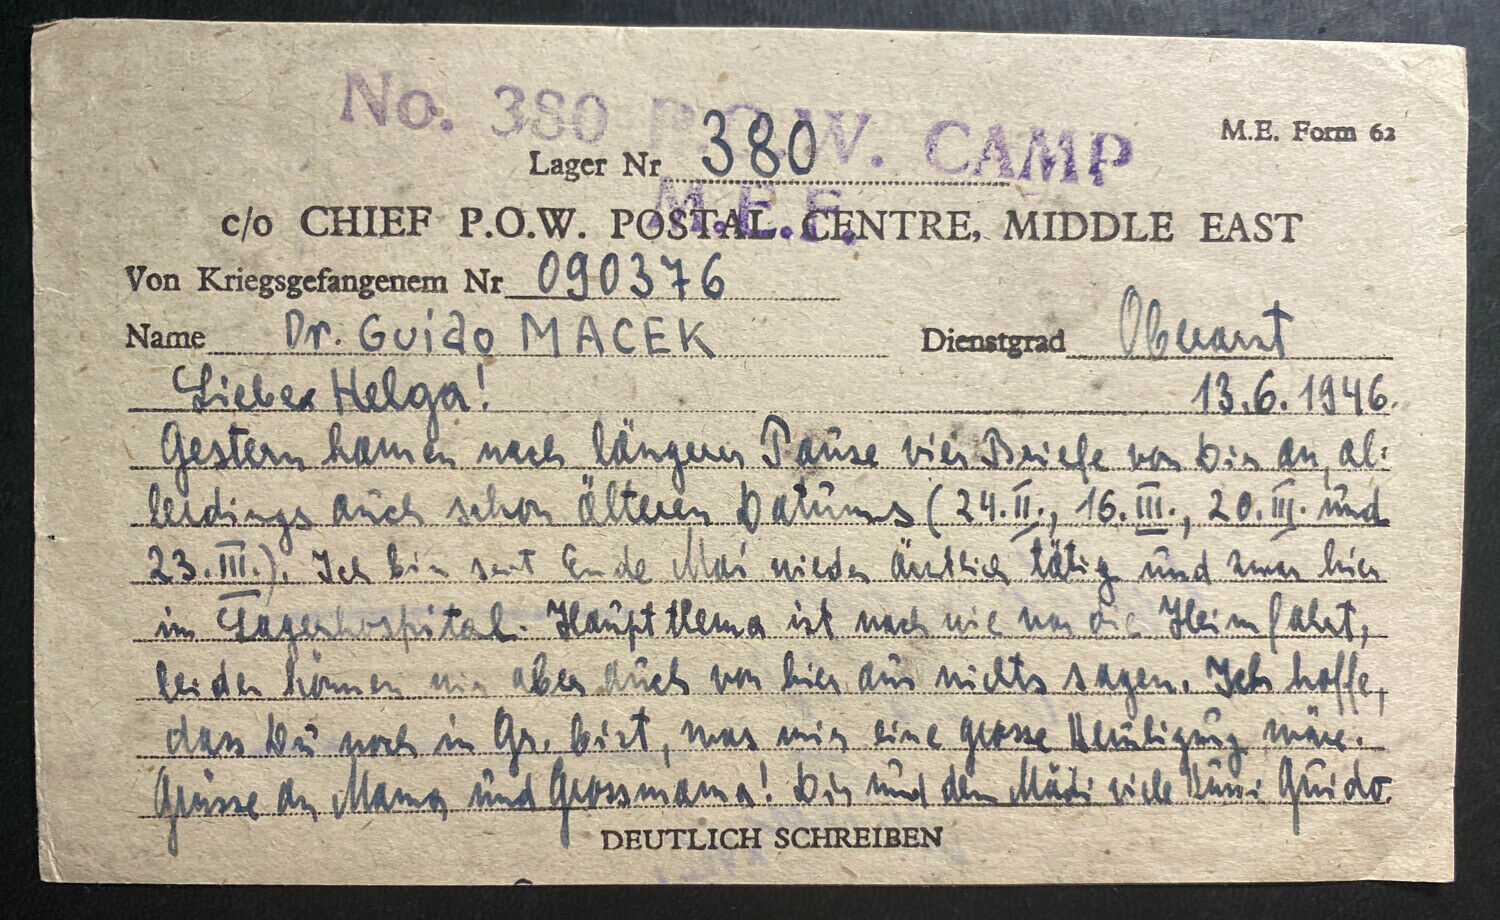 No. 380 P.O.W. CAMP
M.E.F.
M.E. Form 62
Lager Nr 380
c/o CHIEF P.O.W. POSTAL CENTRE, MIDDLE EAST
Von Kriegsgefangenem Nr 090376
Name Dr. Guido MACEK Dienstgrad Oberarzt
Liebe Helga! 13.6.1946.
Gestern kamen nach längerer Pause vier Briefe von Dir an, al-
lerdings auch schon älteren Datums (24.II., 16.III., 20.III. und
23.III.). Ich bin seit Ende Mai wieder ärztlich tätig und zwar hier
im Lagerhospital. Hauptthema ist nach wie vor die Heimfahrt,
leider können wir aber auch von hier aus nichts sagen. Ich hoffe,
dass Du noch in Gr. bist, was mir eine grosse Beruhigung wäre.
Grüsse an Mama und Grossmama! Dir und dem Mädi viele Bussi Guido.
DEUTLICH SCHREIBEN